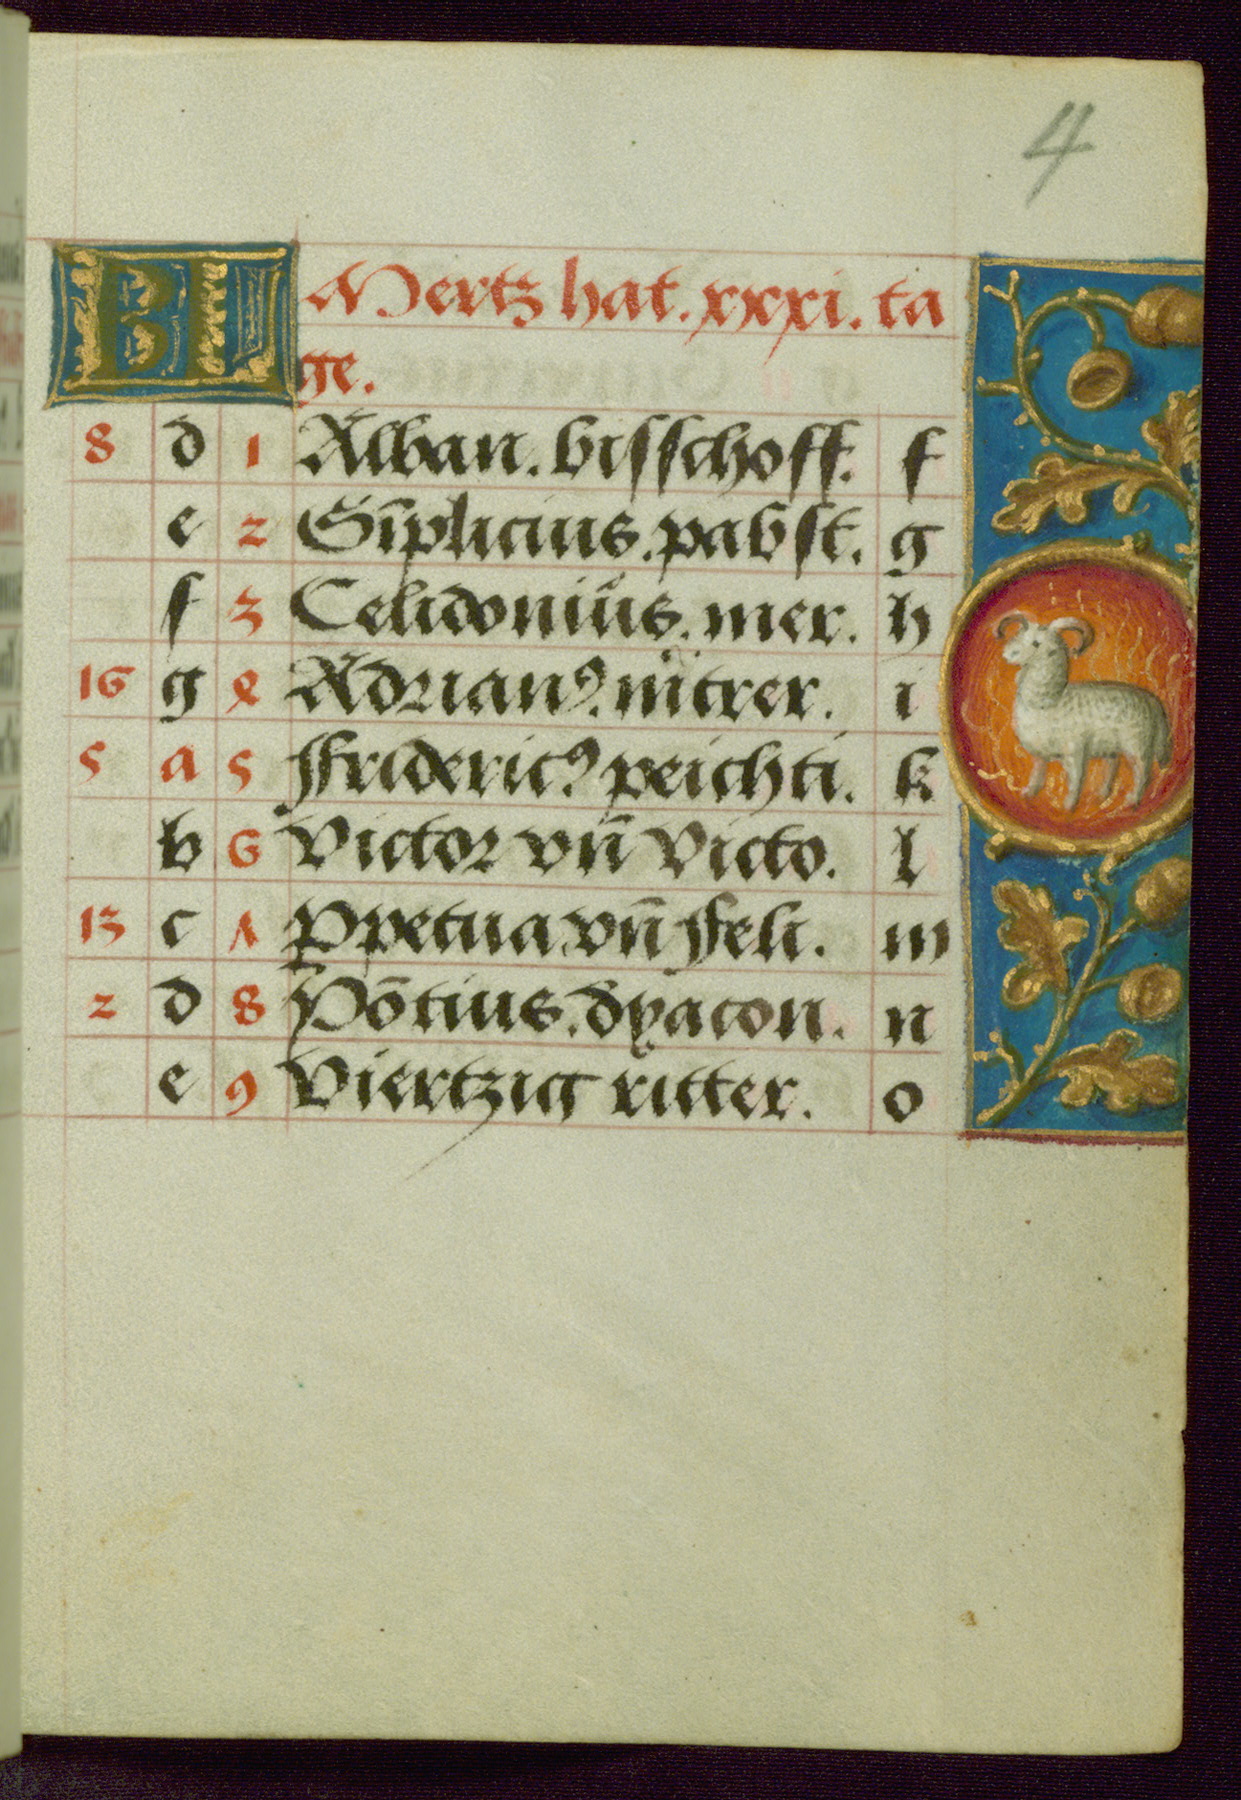 4
KL Mertz hat. xxxi. ta
ge.
8 d 1 Alban. bisschoff. f
e 2 Sīplicius. pabst. g
f 3 Celidoniüs. mer. h
16 g 4 Adrianꝰ. mẗrer. i
5 a 5 Ffridericꝰ. peichti. k
b 6 Victor vn̄ Victo. l
13 c 7 Ꝑpetua vn̄ Feli. m
2 d 8 Pōtius. dyacon. n
e 9 Viertzig ritter. o